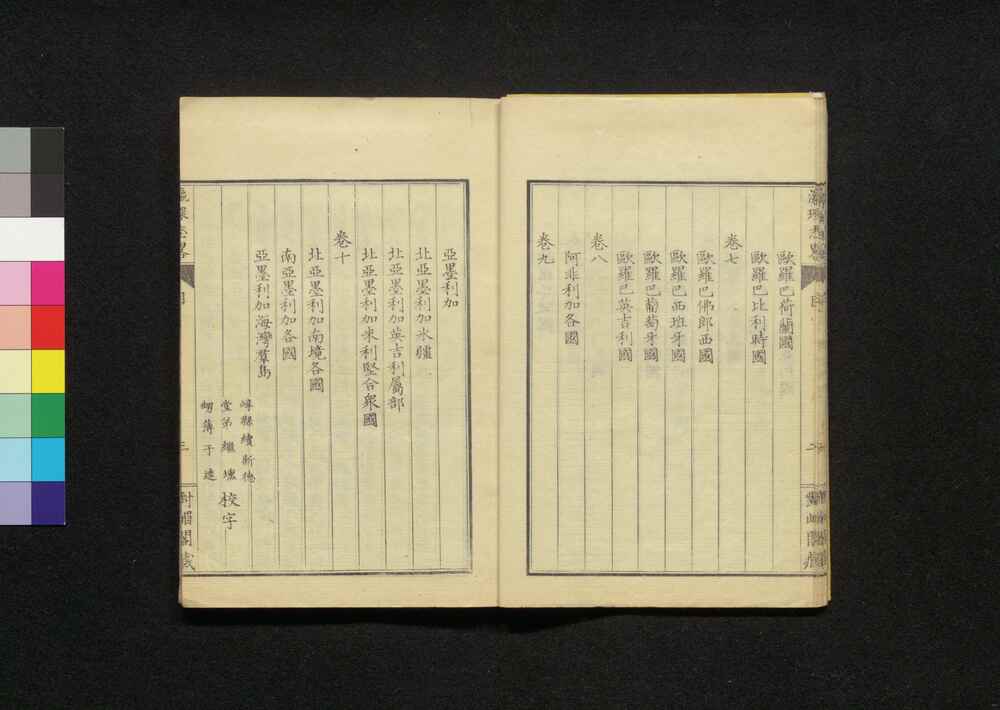 歐羅巴荷蘭國
歐羅巴比利時國
卷七
歐羅巴佛郎西國
歐羅巴西班牙國
歐羅巴葡萄牙國
歐羅巴英吉利國
卷八
阿非利加各國
卷九
亞墨利加
北亞墨利加冰疆
北亞墨利加英吉利屬部
北亞墨利加米利堅合衆國
卷十
北亞墨利加南境各國
南亞墨利加各國
亞墨利加海灣羣島
崞縣續新德
堂弟繼壎
甥薄于逵
校字
三